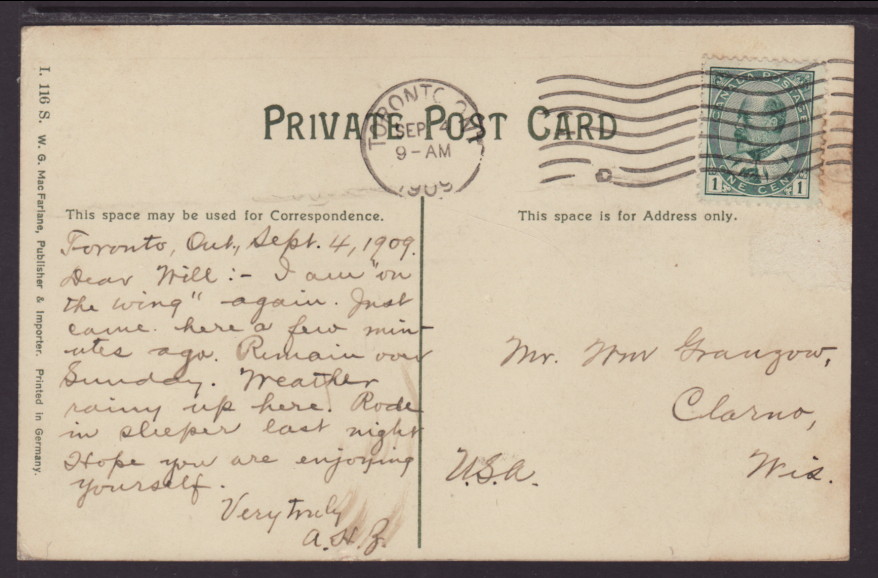 PRIVATE POST CARD
TORONTO, ONT.
SEP 4
9-AM
1909
CANADA POSTAGE
1 ONE CENT 1
This space may be used for Correspondence.
This space is for Address only.
Toronto, Ont., Sept. 4, 1909.
Dear Will:- I am "on
the wing" again. Just
came here a few min-
utes ago. Remain over
Sunday. Weather
rainy up here. Rode
in sleeper last night
Hope you are enjoying
yourself.
Very truly
A.H.Z.
Mr. Wm Granzow,
Clarno,
U.S.A. Wis.
I. 116 S. W. G. MacFarlane, Publisher & Importer. Printed in Germany.